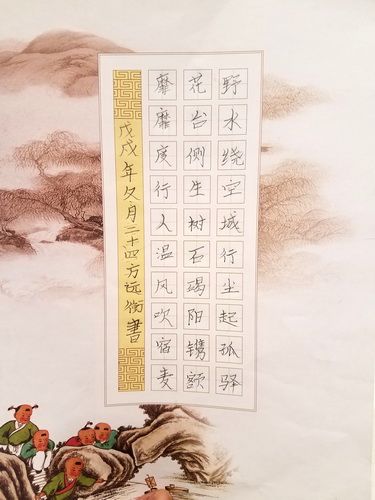 野水绕空城行尘起孤驿
花台侧生树石碣阳镌额
靡靡度行人温风吹宿麦
戊戌年冬月二十四方远書